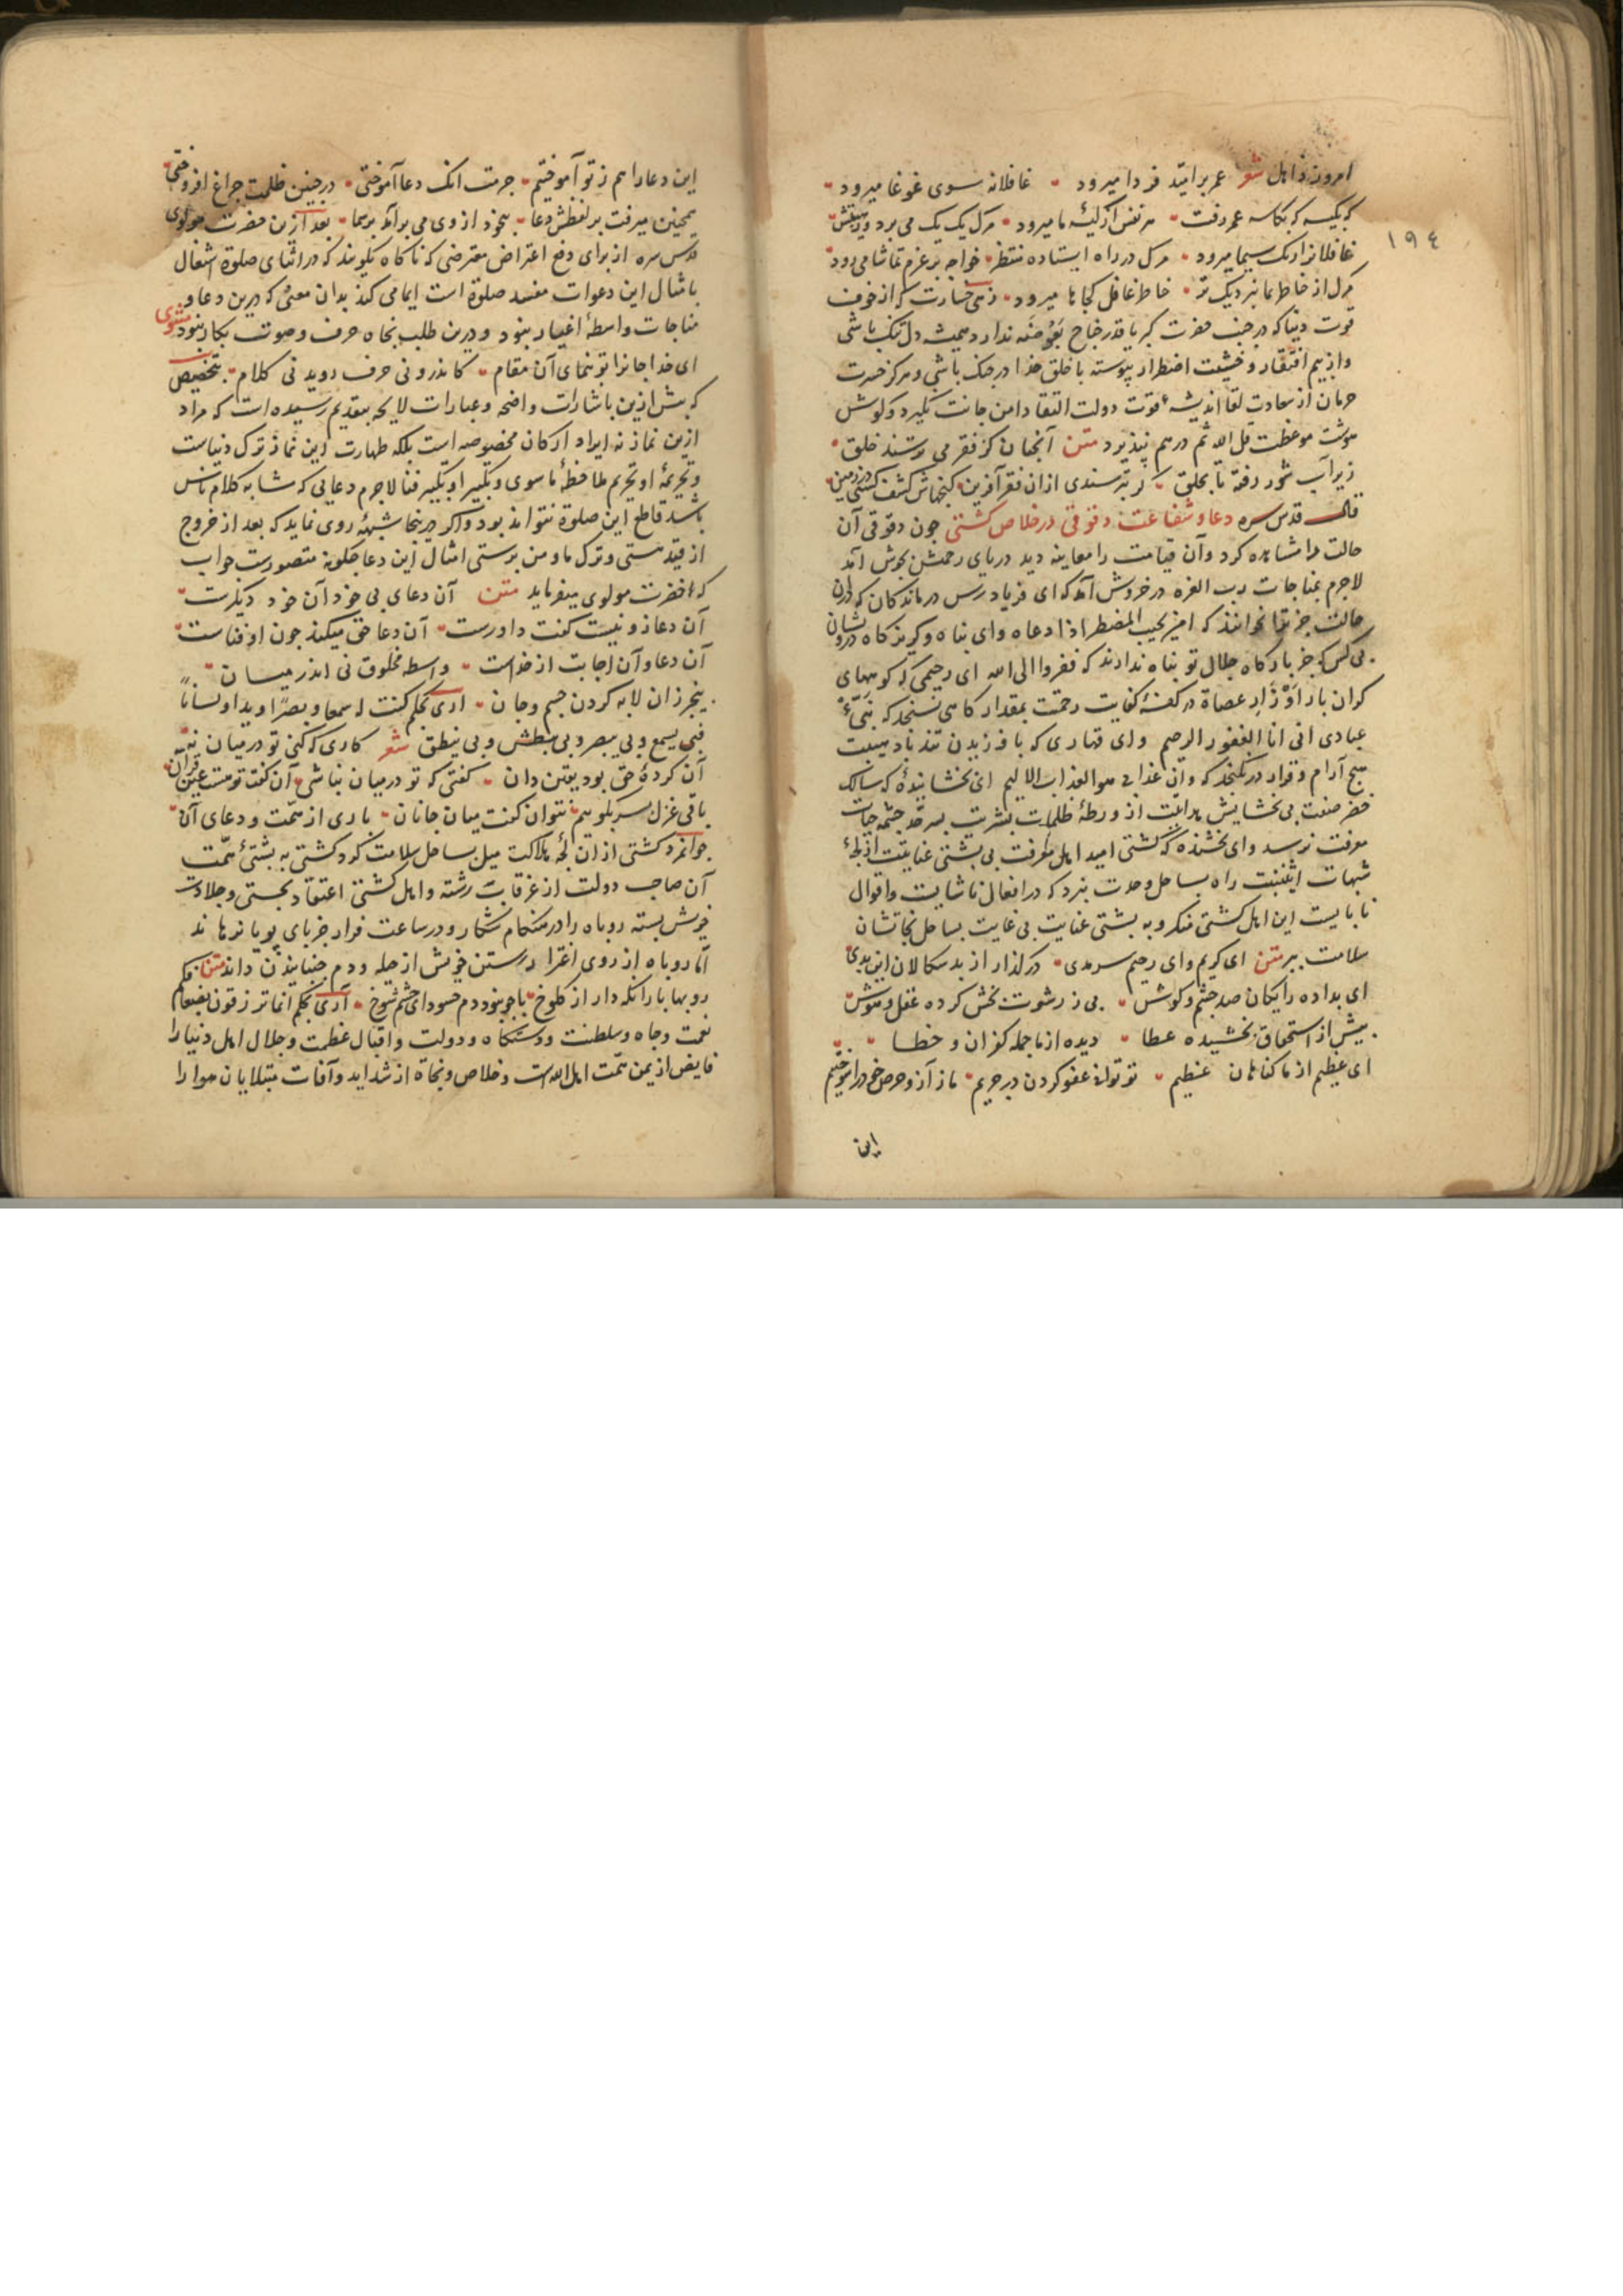 امروز ذاهل شعر عمر بر امید فردا میرود غافلانه سوی غوغا میرود
که بکیسه که بکاسه عمر رفت هر نفس از کیسه ما میرود مرگ یک یک می برد
غافلانرا رنگ سیما میرود مرگ در راه ایستاده منتظر خواجه بر عزم تماشا می رود
١٩٤
مرگ از خاطر بما نزدیک تر خاطر غافل کجاها میرود زهی خسارت که از خوف
فوت دنیا که در جنب حضرت کبریا قدر جناح بعوضه ندارد همیشه دل تنک باشی
و از بیم افتقار و خشیت اضطرار پیوسته با خلق خدا در جنک باشی و هرکز حسرت
حرمان از سعادت لقا اندیشه فوت دولت التقا دامن جانت نگیرد و گوش
هوشت موعظت قل الله ثم ذرهم نپذیرد متن آنچنان کز فقر می ترسند خلق
زیر آب شور رفته تا بحلق گر بترسندی ازان فقر آفرین گنجهاشان کشف گشتی در زمین
قال قدس سره دعا و شفاعت دقوقی در خلاص کشتی چون دقوقی آن
حالت را مشاهده کرد و آن قیامت را معاینه دید دریای رحمتش بجوش آمد
لاجرم بمناجات رب العزه در خروش آمد که ای فریادرس درماندکان که درین
حالت جز ترا نخوانند که امن یجیب المضطر اذا دعاه و ای پناه و گریزگاه درویشان
بی کس که جز بارگاه جلال تو پناه ندارند که ففروا الی الله ای رحیمی که کوههای
گران بار اوزار عصاة در کفه کفایت رحمت بمقدار کاهی نسنجد که نبئ
عبادی انی انا الغفور الرحیم و ای قهاری که با وزیدن تند باد هیبت
هیچ آرام و قرار درنگنجد که و ان عذابی هو العذاب الالیم ای بخشاینده که سالک
خضر صفت بی بخشایش هدایت از ورطه ظلمات بشریت بسرحد چشمه حیات
معرفت نرسد و ای بخشنده که کشتی امید اهل معرفت بی پشتی عنایتت از لجه
شبهات اثنینیت راه بساحل وحدت نبرد که در افعال ناشایست و اقوال
نابایست این اهل کشتی منگر و به پشتی عنایت بی غایت بساحل نجاتشان
سلامت ببر متن ای کریم و ای رحیم سرمدی درگذار از بدسگالان این بدی
ای بداده رایگان صد چشم و گوش بی ز رشوت بخش کرده عقل و هوش
پیش از استحقاق بخشیده عطا دیده از ما جمله کفران و خطا
ای عظیم از ما گناهان عظیم تو توانی عفو کردن در حریم ما ز آز و حرص خود را سوختیم
این
این دعا را هم ز تو آموختیم حرمت انک دعا آموختی در چنین ظلمت چراغ افروختی
همچنین میرفت بر لفظش دعا بیخود از وی می برآمد بر سما بعد ازین حضرت مولوی
قدس سره از برای دفع اعتراض معترضی که ناگاه بگویند که در اثنای صلوة اشتغال
بامثال این دعوات مفسد صلوة است ایمامی کند بدان معنی که درین دعا و
مناجات واسطه اغیار نبود و درین طلب نجاه حرف و صوت بکار نبود مثنوی
ای خدا جانرا تو بنمای آن مقام کاندرو نی حرف روید نی کلام بتخصیص
که پیش ازین باشارات واضحه و عبارات لایحه بتقدیم رسیده است که مراد
ازین نماز نه ایراد ارکان مخصوصه است بلکه طهارت این نماز ترک دنیاست
و تحریمه او تحریم ملاحظه ماسوی و تکبیر او تکبیر فنا لاجرم دعایی که مشابه کلام ناس
باشد قاطع این صلوة نتواند بود و اگر درینجا شبهه روی نماید که بعد از خروج
از قید هستی و ترک ما و من پرستی امثال این دعا چگونه متصورست جواب
که حضرت مولوی میفرماید متن آن دعای بی خود آن خود دیگرست
آن دعا زو نیست گفت داورست آن دعا حق میکند چون او فناست
آن دعا و آن اجابت از خداست واسطه مخلوق نی اندر میان
بیخبر زان لابه کردن جسم و جان اری بحکم کنت له سمعا و بصرا و یدا و لسانا
فبی یسمع و بی یبصر و بی یبطش و بی ینطق شعر کاری که کنی تو در میان نه
آن کرده حق بود یقین دان گفتی که تو در میان نباشی آن گفت تو هست عین قرآن
باقی غزل سر بگویم نتوان گفت میان جانان باری از همت و دعای آن
جوانمرد کشتی ازان لجه هلاکت میل ساحل سلامت کرد کشتی به پشتی همت
آن صاحب دولت از غرقاب رسته و اهل کشتی اعتقاد بچستی و جلادت
خویش بسته روباه را در هنگام شکار و در ساعت فرار جز پای پویا نرهاند
اما روباه از روی اغترا رستن خویش از حیله و دم جنبانیدن داند متن
روبها پا را نگه دار از کلوخ پا چو نبود دم چه سود ای چشم شوخ آری بحکم انما ترزقون بضعفائکم
نعمت و جاه و سلطنت و دستگاه و دولت و اقبال عظمت و جلال اهل دنیا را
فایض از یمن همت اهل الله است و خلاص و نجاة از شداید و آفات مبتلایان هوا را